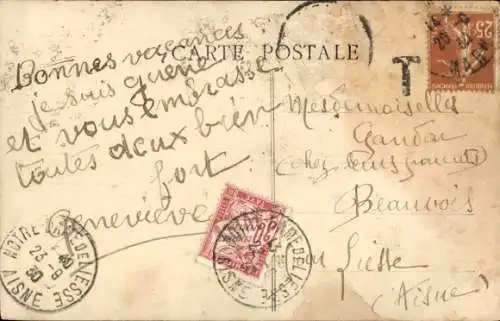 CARTE POSTALE
Bonnes vacances
je suis guérie
et vous embrasse
toutes deux bien
fort
Geneviève
T
25
Mesdemoiselles
Gandon
(chez leurs parents)
Beauvois
par Liesse
(Aisne)
NOTRE DAME DE LIESSE
23-9
30
AISNE